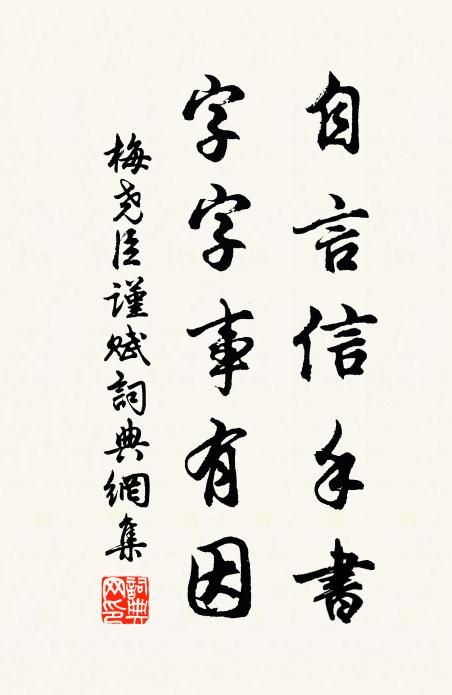 自言信手書
字字事有因
梅尧臣謹賦詞典網集
詞典网印